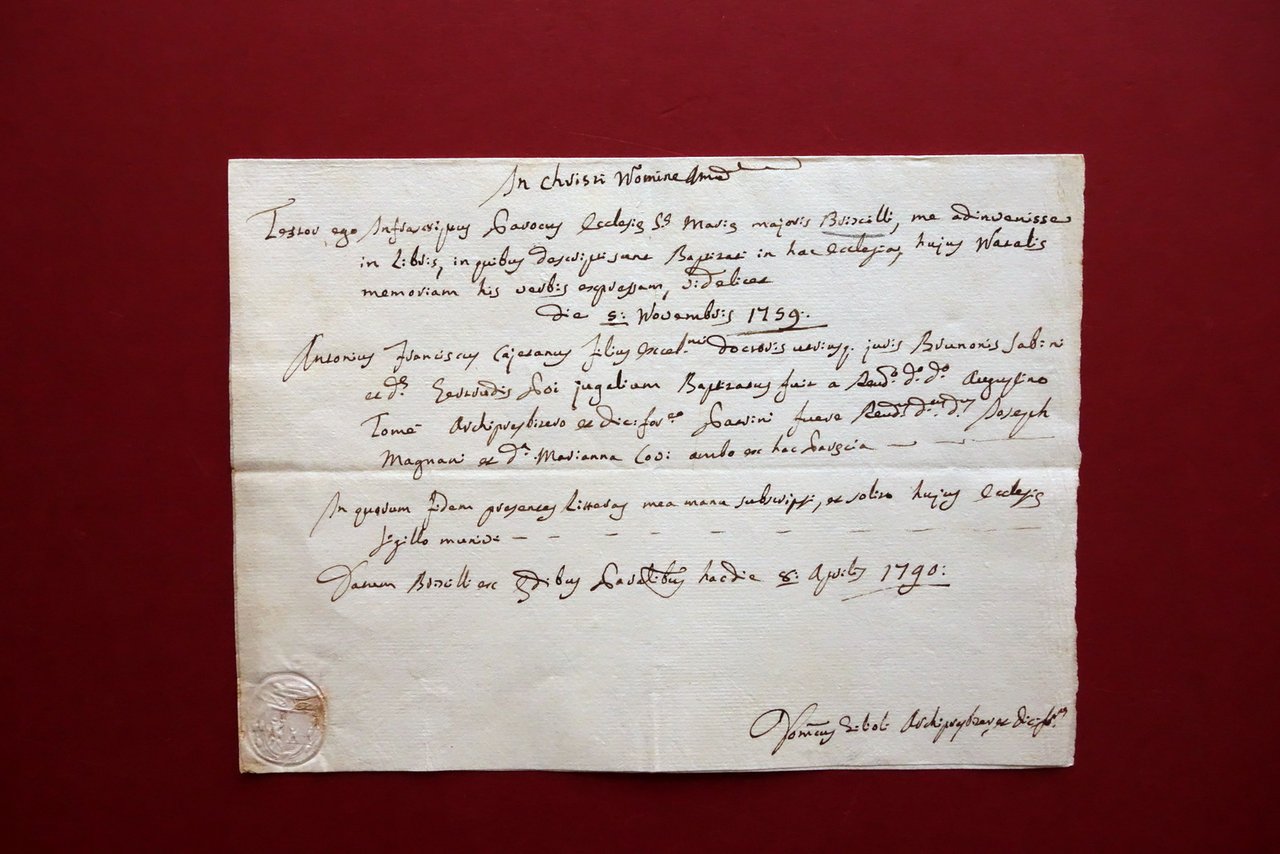 In Christi Nomine Amen
Testor ego Infrascriptus Parocus Ecclesię Sę Marię majoris Brixilli, me adinvenisse
in Libris, in quibus descripti sunt Baptizati in hac Ecclesia, hujus Natalis
memoriam his verbis expressam, videlicet
die 5: Novembris 1759:
Antonius Franciscus Cajetanus filius Excel.mi Doctoris utriusq. juris Brunonis Sabini
et d.ę Gertrudis jugalium Baptizatus fuit a Rend.o d.o d.o Augustino
Tomè Archipresbitero et Patrini fuere Rend.us d.us d.us Joseph
Magnani et d.a Marianna ambo ex hac Paręcia
In quorum fidem presentes Litteras mea manu subscripsi, et solito hujus Ecclesię
sigillo munivi
Datum Brixilli ex Ędibus Paralibus hac die 8: Aprilis 1790:
Domcus Archipresbiter, et